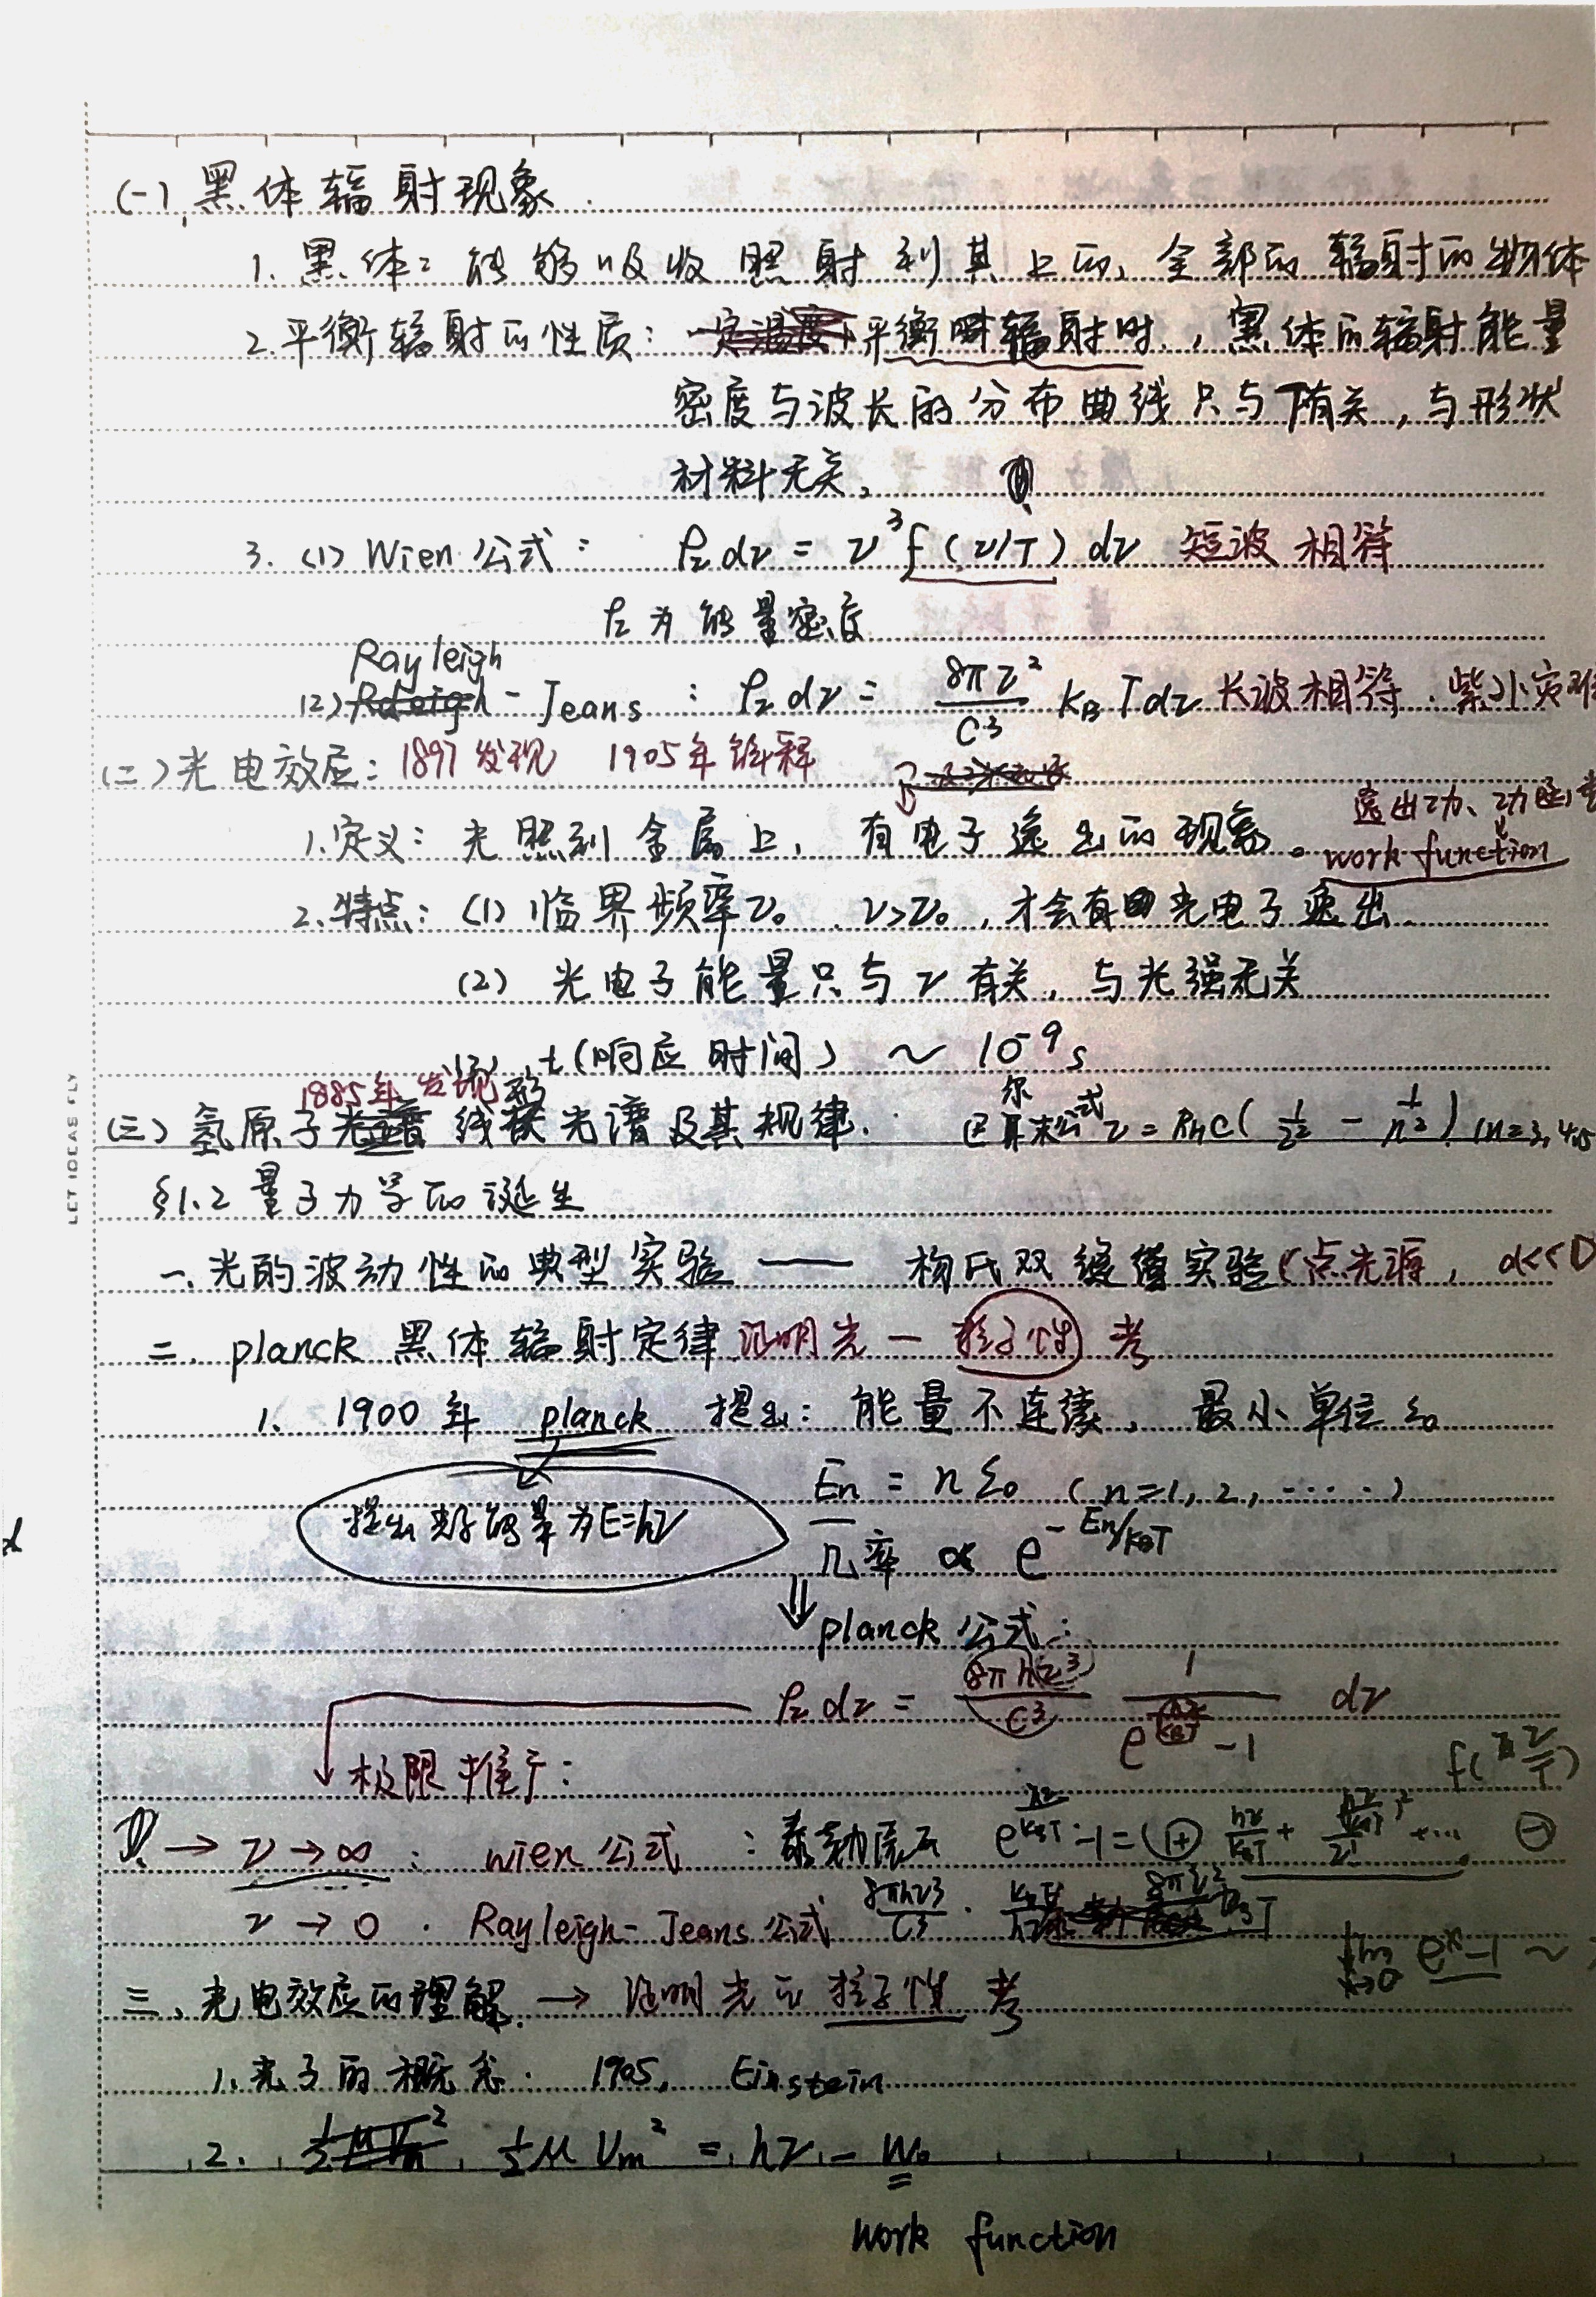 (一)、黑体辐射现象
1. 黑体: 能够吸收照射到其上的, 全部的辐射的物体
2. 平衡辐射的性质: 平衡辐射时, 黑体的辐射能量
密度与波长的分布曲线只与T有关, 与形状
材料无关,
3. (1) Wien 公式: ρν dν = ν³ f(ν/T) dν 短波相符
ρν 为能量密度
Rayleigh
(2) - Jeans : ρν dν = 8πν²/C³ KB T dν 长波相符. 紫外灾难
(二) 光电效应: 1897 发现 1905年解释
逸出功、功函
1. 定义: 光照到金属上, 有电子逸出的现象。 work function
2. 特点: (1) 临界频率 ν₀ ν>ν₀, 才会有光电子逸出
(2) 光电子能量只与 ν 有关, 与光强无关
(3) t(响应时间) ~ 10⁻⁹ s
1885年发现
(三) 氢原子线形光谱及其规律. 巴耳末公式 ν = RHC(1/2² - 1/n²) (n=3,4,5
LET IDEAS FLY
§1.2 量子力学的诞生
一、光的波动性的典型实验 —— 杨氏双缝实验(点光源, d<<D
二、planck 黑体辐射定律 证明光 — 粒子性 考
1. 1900年 planck 提出: 能量不连续, 最小单位 ε₀
En = nε₀ (n=1, 2, ......)
提出光子能量为E=hν
几率 ∝ e^(-En/KBT)
⇓ planck 公式:
ρν dν = 8πhν³/C³ 1/(e^(hν/KBT) -1) dν
极限推广: f(ν/T)
→ ν→∞ : wien 公式 : 泰勒展开 e^(hν/KBT) -1 = ⊕ hν/KBT + (hν/KBT)²/2! + ... ⊖
ν→0 . Rayleigh-Jeans 公式 8πhν³/C³ ·
lim x→0 eˣ-1 ~
三、光电效应的理解. → 证明光的粒子性 考
1. 光子的概念: 1905, Einstein
2. ½μVm² = hν - W₀
work function